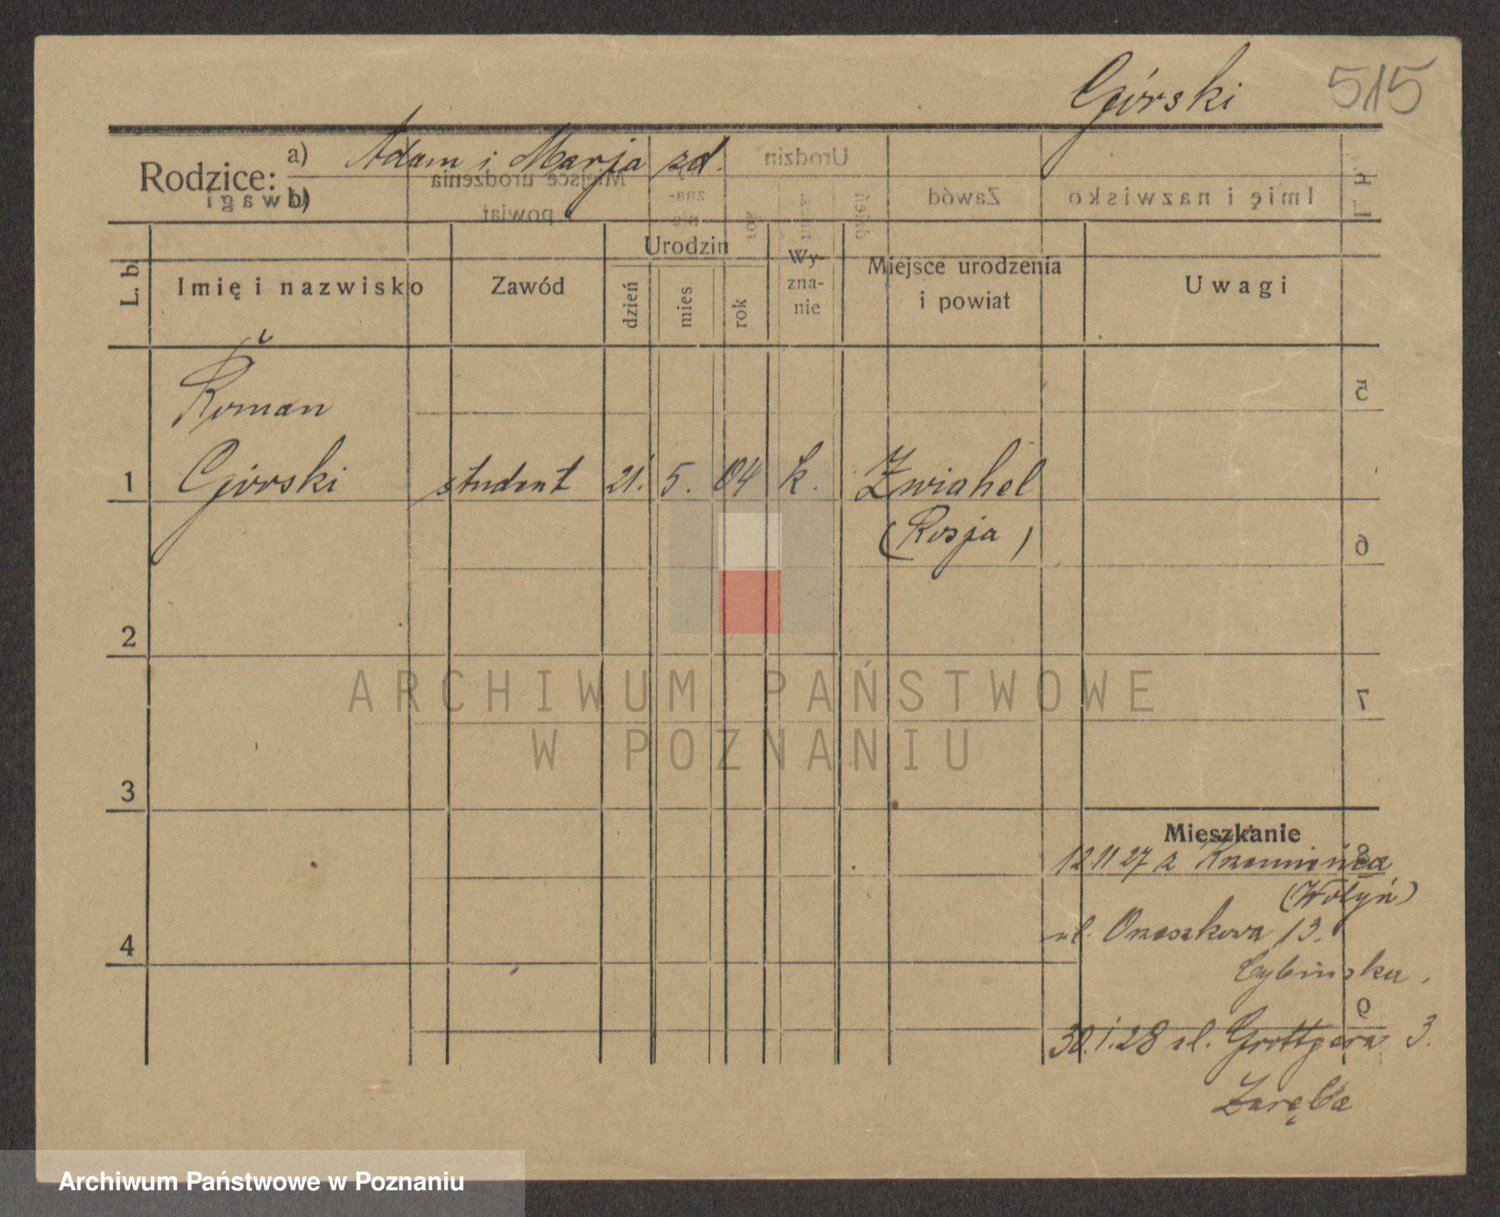 Górski 515
Rodzice: a) Adam i Marja zd.
b)
L. b. Imię i nazwisko Zawód Urodzin dzień mies rok Wy-zna-nie Miejsce urodzenia i powiat Uwagi
Roman
1 Górski student 21. 5. 04 k. Zwiahel
(Rosja)
2
3
4
Mieszkanie
12 11 27 z Krzemieńca
(Wołyń)
ul. Orzeszkowa 13.
Cybińska.
30.1.28 ul. Grottgera 3.
Zaręba
ARCHIWUM PAŃSTWOWE
W POZNANIU
Archiwum Państwowe w Poznaniu